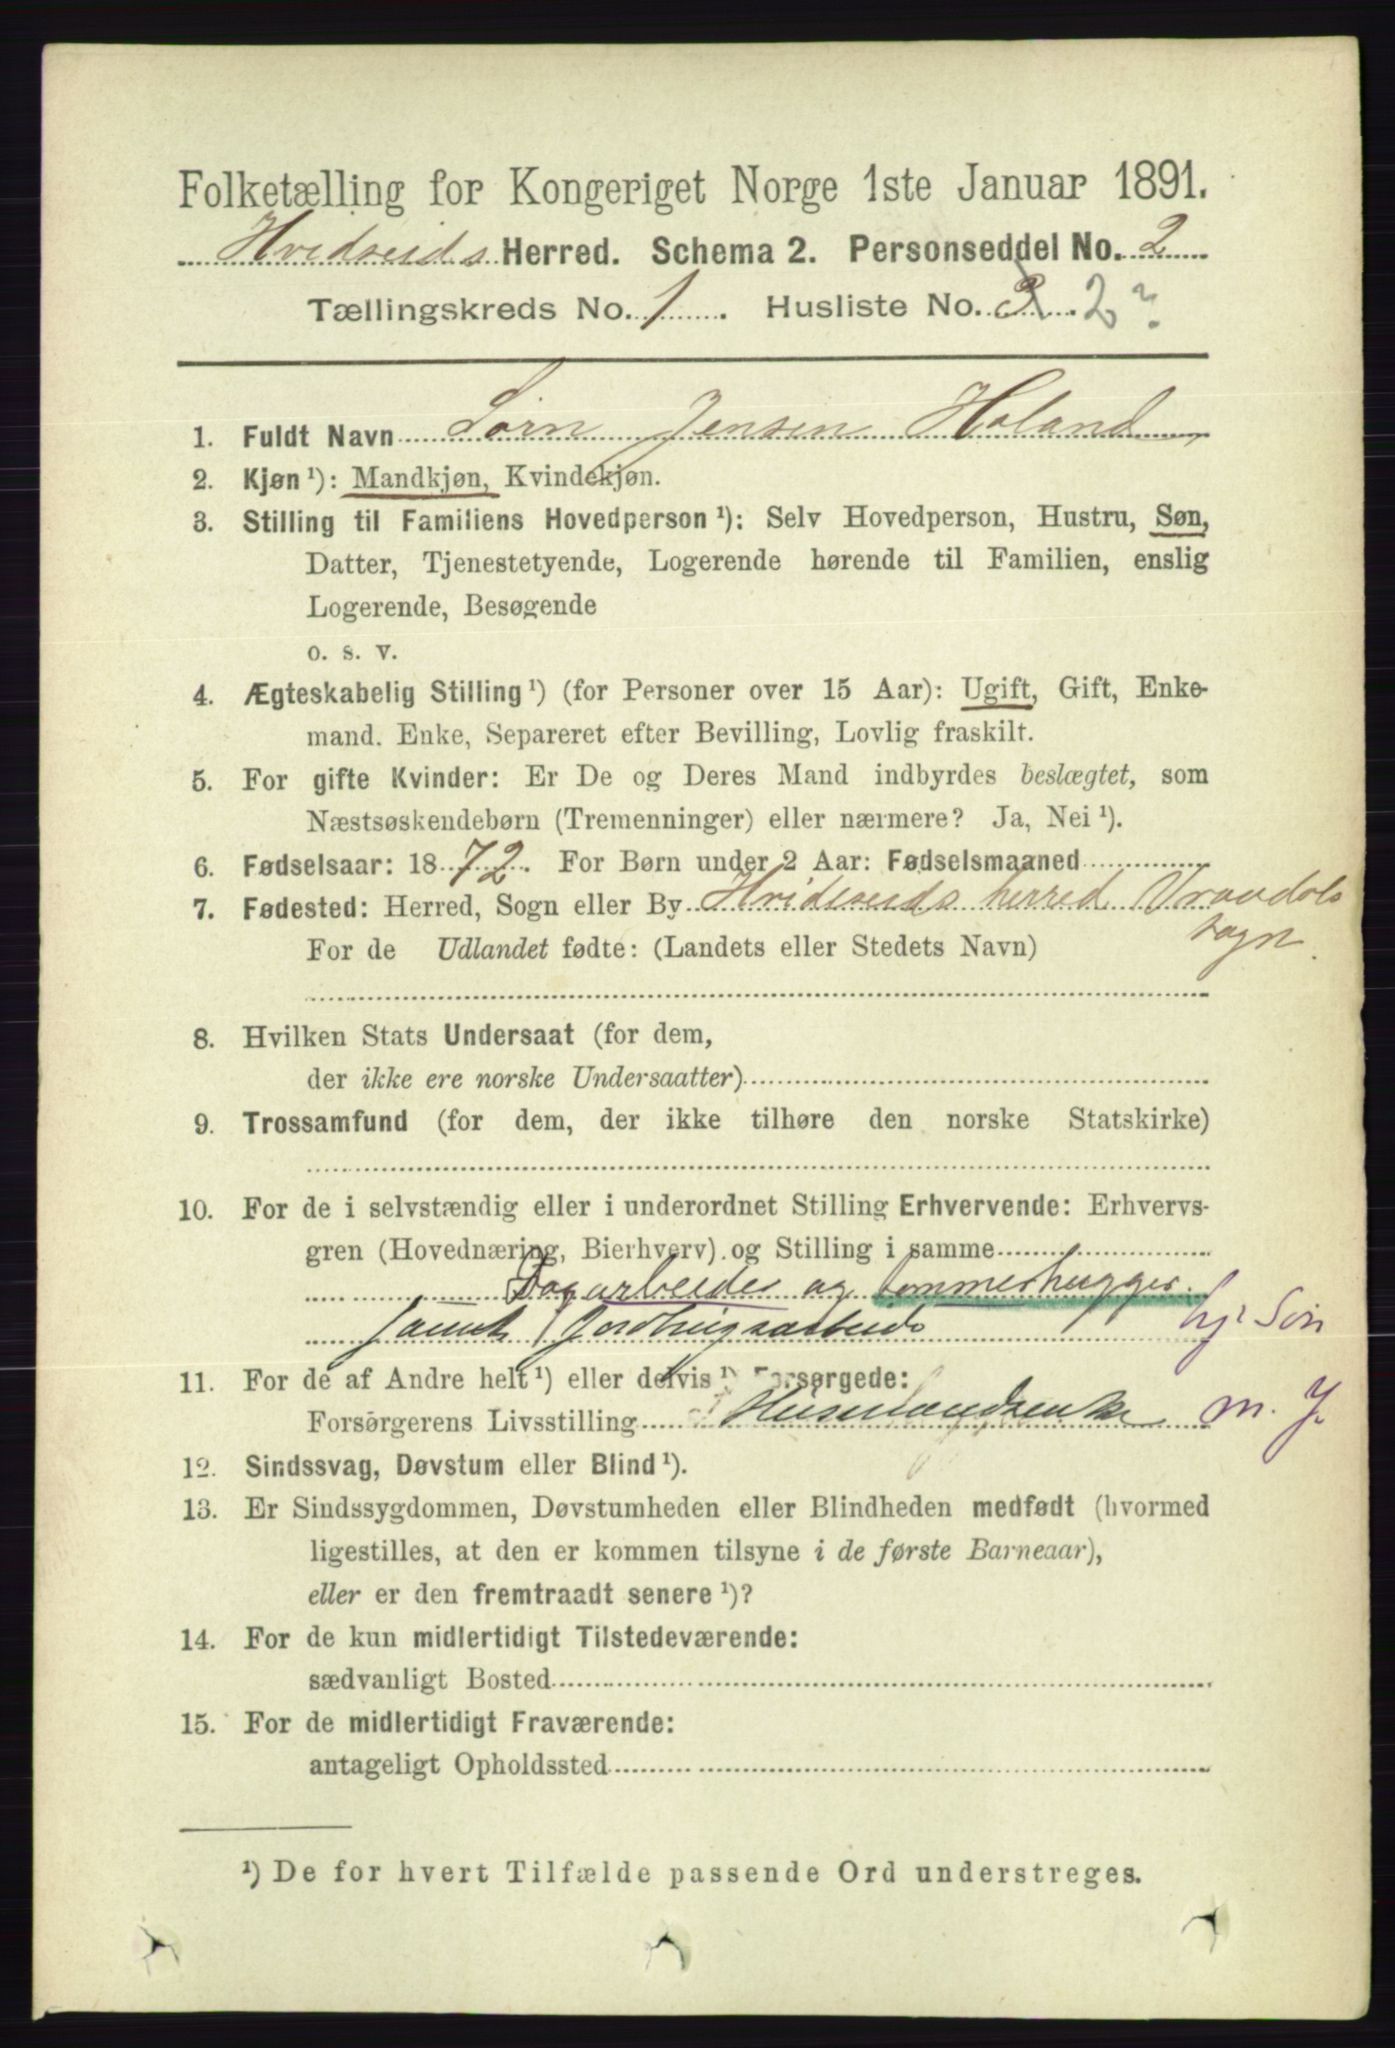 Folketælling for Kongeriget Norge 1ste Januar 1891.
Hvidseids Herred. Schema 2. Personseddel No. 2
Tællingskreds No. 1. Husliste No. 3. 2?
1. Fuldt Navn Sørn Jensen Haland
2. Kjøn ¹): Mandkjøn, Kvindekjøn.
3. Stilling til Familiens Hovedperson ¹): Selv Hovedperson, Hustru, Søn,
Datter, Tjenestetyende, Logerende hørende til Familien, enslig
Logerende, Besøgende
o. s. v.
4. Ægteskabelig Stilling ¹) (for Personer over 15 Aar): Ugift, Gift, Enke-
mand. Enke, Separeret efter Bevilling, Lovlig fraskilt.
5. For gifte Kvinder: Er De og Deres Mand indbyrdes beslægtet, som
Næstsøskendebørn (Tremenninger) eller nærmere? Ja, Nei ¹).
6. Fødselsaar: 1872. For Børn under 2 Aar: Fødselsmaaned
7. Fødested: Herred, Sogn eller By Hvideseids herred Vraadals
sogn.
For de Udlandet fødte: (Landets eller Stedets Navn)
8. Hvilken Stats Undersaat (for dem,
der ikke ere norske Undersaatter)
9. Trossamfund (for dem, der ikke tilhøre den norske Statskirke)
10. For de i selvstændig eller i underordnet Stilling Erhvervende: Erhvervs-
gren (Hovednæring, Bierhverv) og Stilling i samme
Dagarbeider og tømmerhugger
samt Jordbrugsarbeide hj. Søn
11. For de af Andre helt ¹) eller delvis ¹) Forsørgede:
Forsørgerens Livsstilling Husmandsenke m. J.
12. Sindssvag, Døvstum eller Blind ¹).
13. Er Sindssygdommen, Døvstumheden eller Blindheden medfødt (hvormed
ligestilles, at den er kommen tilsyne i de første Barneaar),
eller er den fremtraadt senere ¹)?
14. For de kun midlertidigt Tilstedeværende:
sædvanligt Bosted
15. For de midlertidigt Fraværende:
antageligt Opholdssted
¹) De for hvert Tilfælde passende Ord understreges.